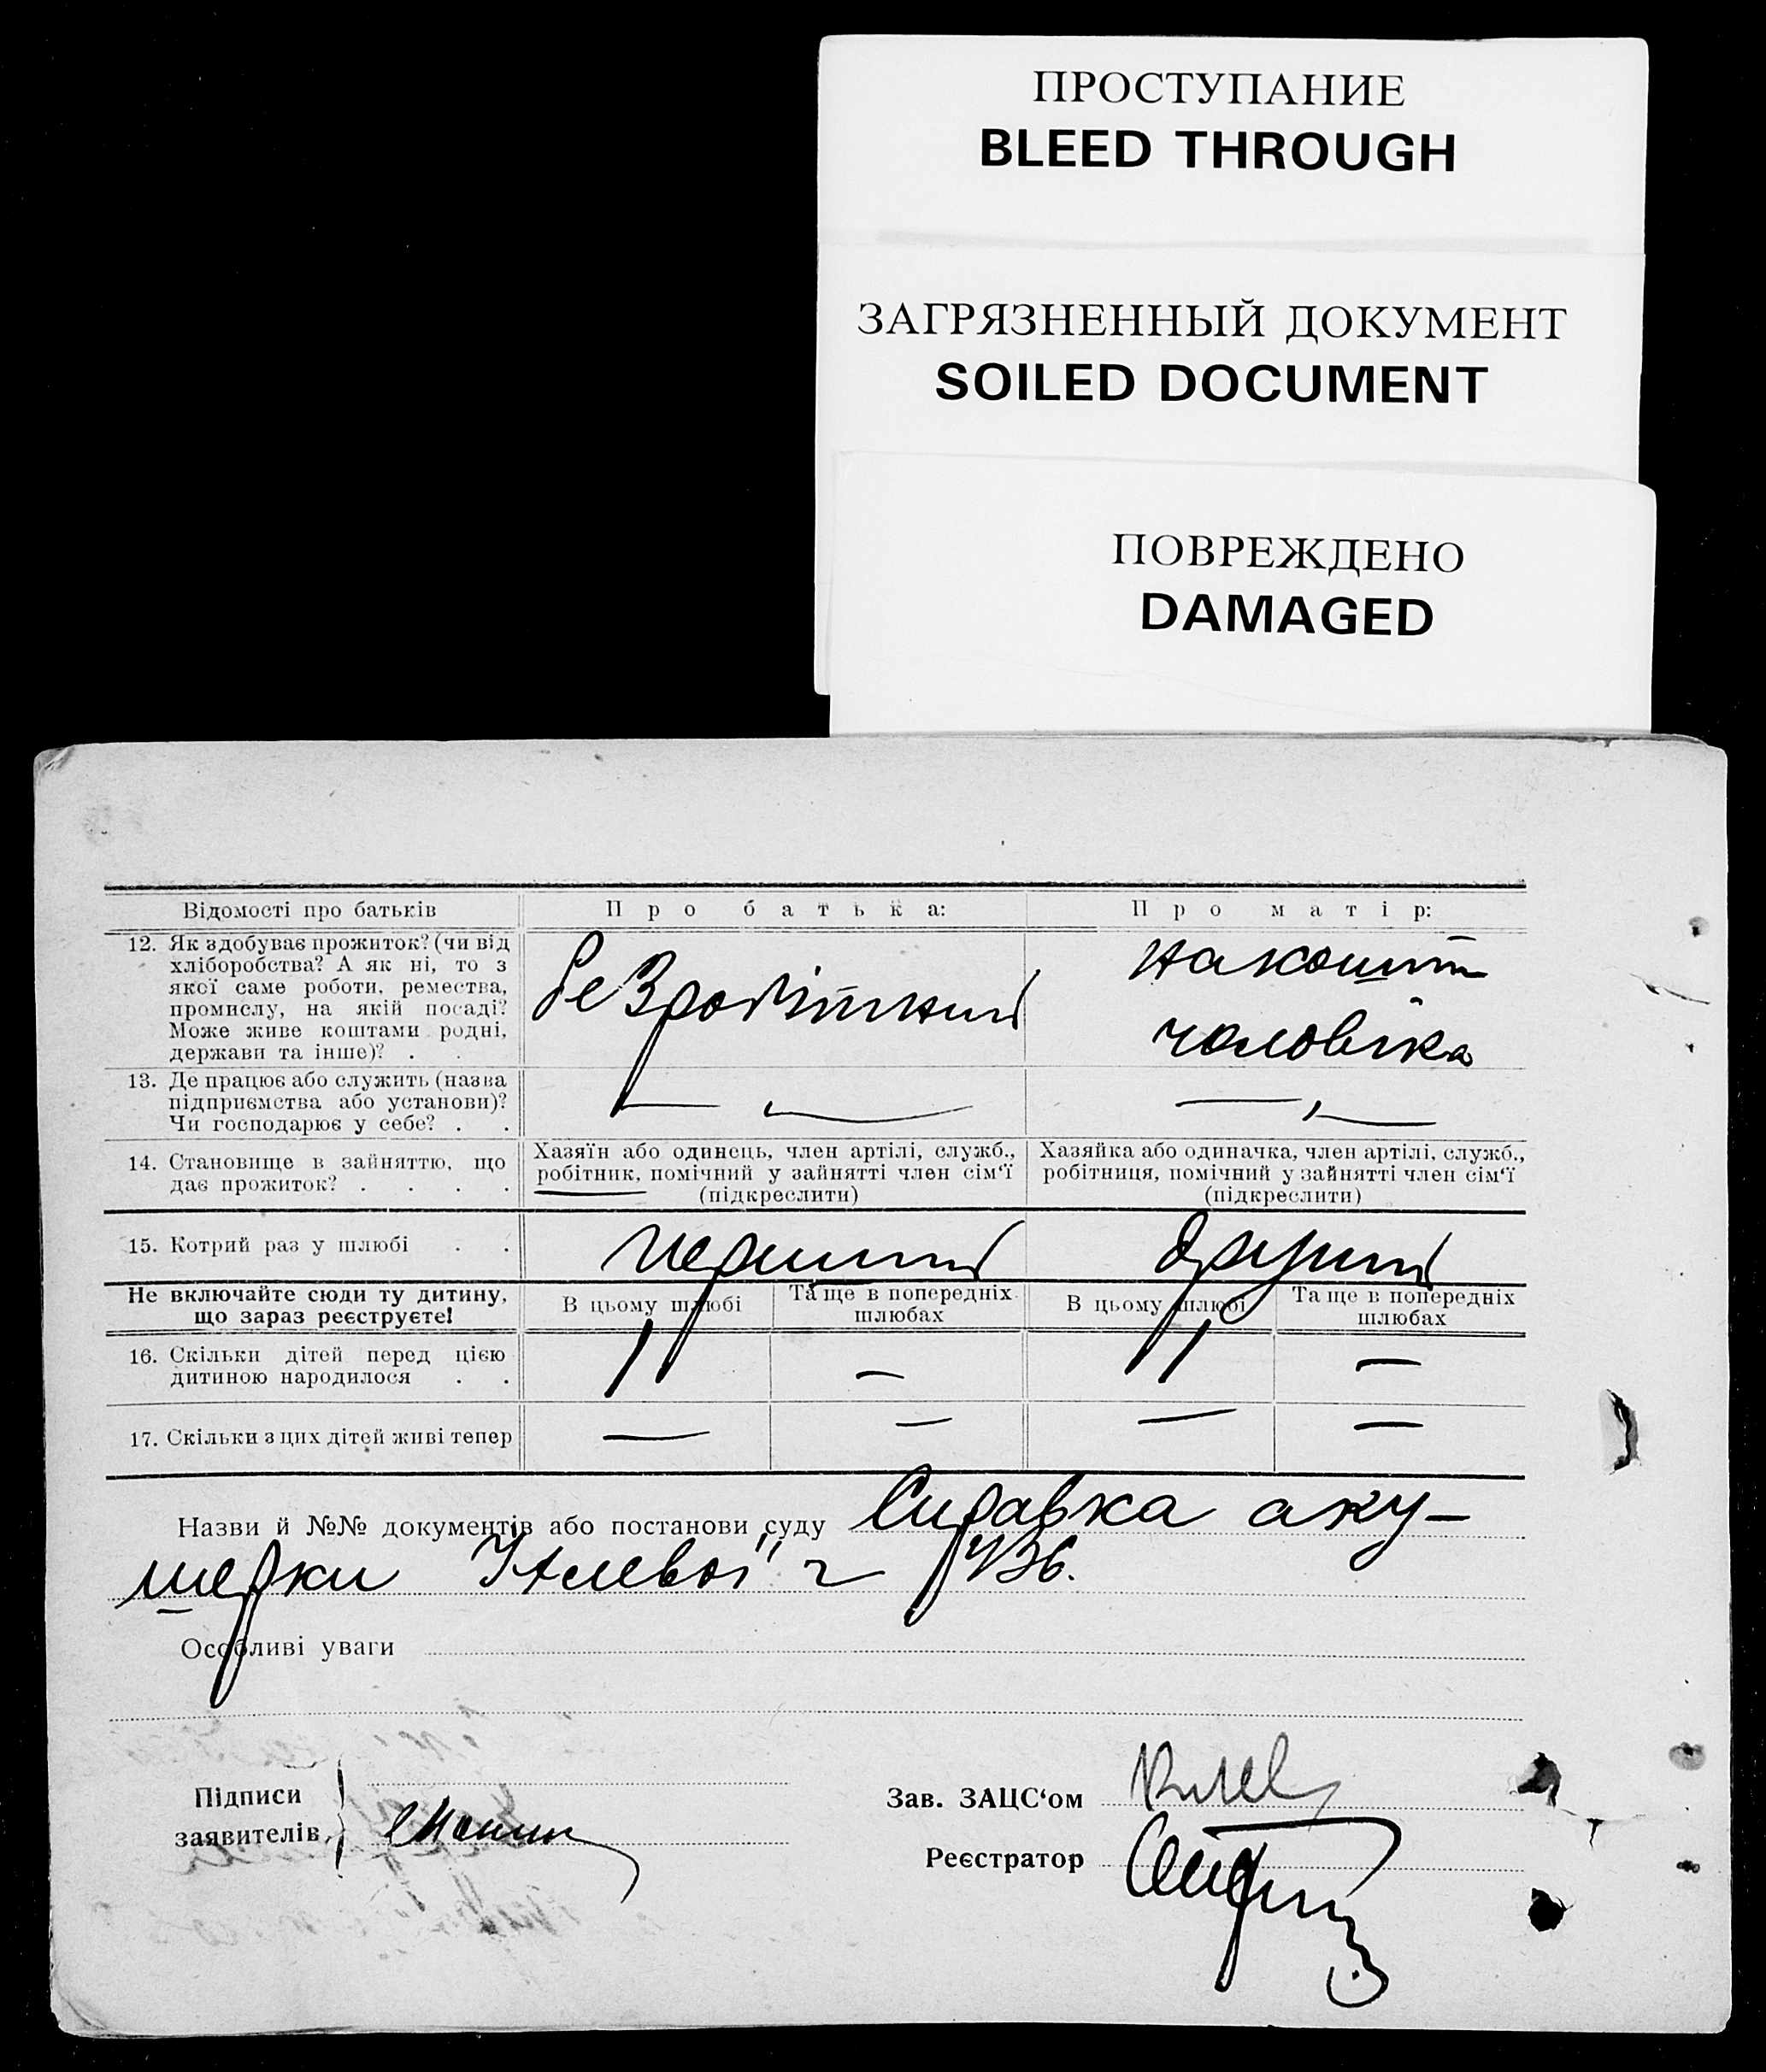 ПРОСТУПАНИЕ
BLEED THROUGH
ЗАГРЯЗНЕННЫЙ ДОКУМЕНТ
SOILED DOCUMENT
ПОВРЕЖДЕНО
DAMAGED
Відомості про батьків
Про батька:
Про матір:
12. Як здобуває прожиток? (чи від
хліборобства? А як ні, то з
якої саме роботи, ремества,
промислу, на якій посаді?
Може живе коштами родні,
держави та інше)? . .
безробітний
на кошти
чоловіка
13. Де працює або служить (назва
підприємства або установи)?
Чи господарює у себе? . .
— —
— —
14. Становище в зайняттю, що
дає прожиток? . . . .
Хазяїн або одинець, член артілі, служб.,
робітник, помічний у зайнятті член сім'ї
(підкреслити)
Хазяйка або одиначка, член артілі, служб.,
робітниця, помічний у зайнятті член сім'ї
(підкреслити)
15. Котрий раз у шлюбі . .
перший
другий
Не включайте сюди ту дитину,
що зараз реєструєте!
В цьому шлюбі
Та ще в попередніх
шлюбах
В цьому шлюбі
Та ще в попередніх
шлюбах
16. Скільки дітей перед цією
дитиною народилося . .
1 — 1 —
17. Скільки з цих дітей живі тепер
— — — —
Назви й №№ документів або постанови суду Справка аку-
шерки
Особливі уваги
Підписи
заявителів,
Зав. ЗАЦС'ом
Реєстратор